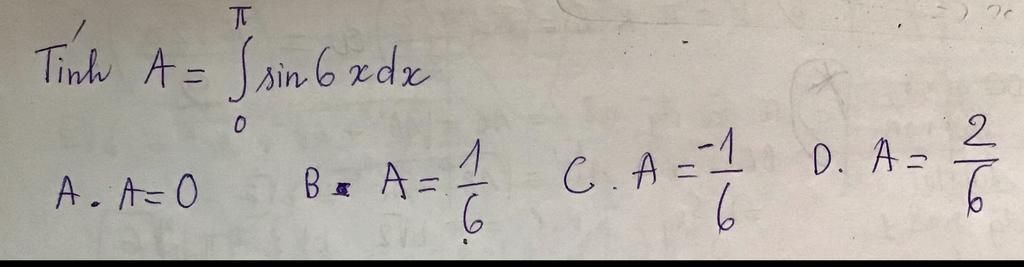 Tính A = ∫₀^π sin6xdx
A. A=0 B. A= 1/6 C. A = -1/6 D. A= 2/6